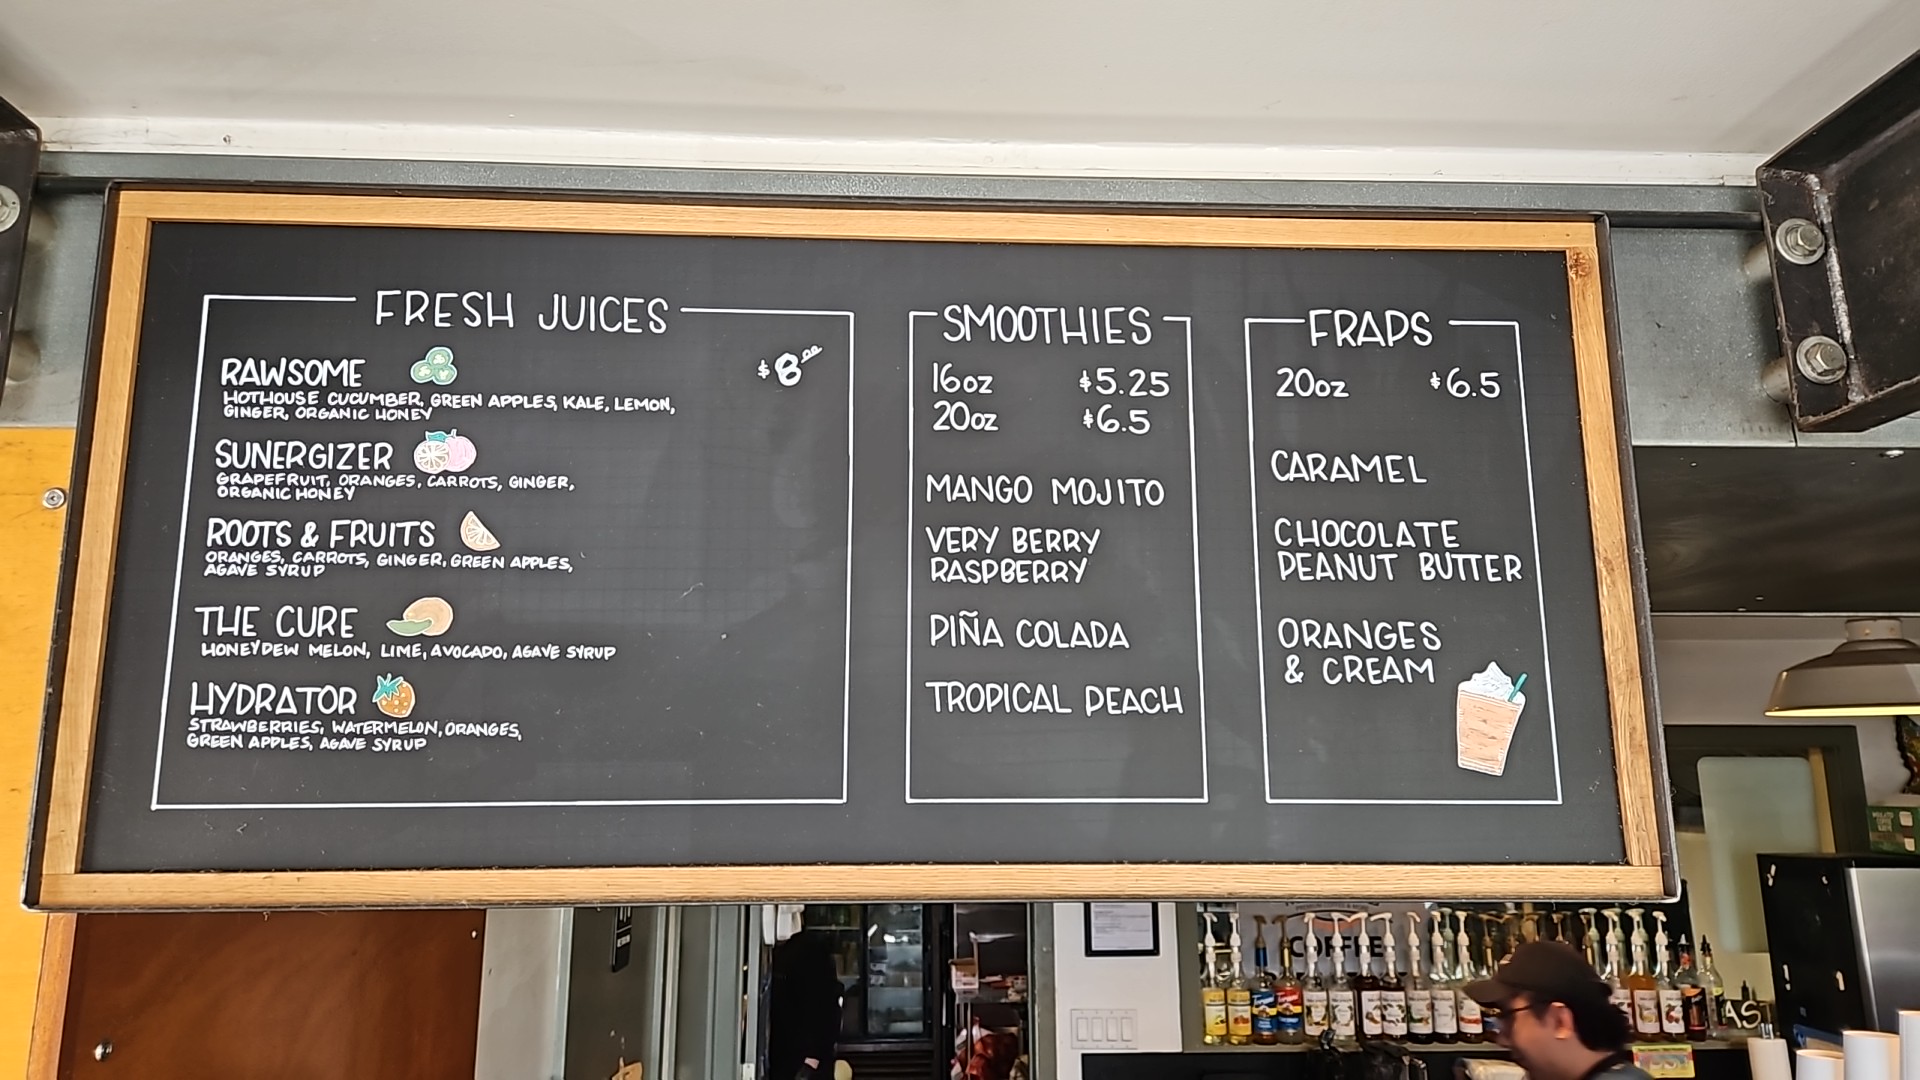 FRESH JUICES
$8.00
RAWSOME
HOTHOUSE CUCUMBER, GREEN APPLES, KALE, LEMON,
GINGER, ORGANIC HONEY
SUNERGIZER
GRAPEFRUIT, ORANGES, CARROTS, GINGER,
ORGANIC HONEY
ROOTS & FRUITS
ORANGES, CARROTS, GINGER, GREEN APPLES,
AGAVE SYRUP
THE CURE
HONEYDEW MELON, LIME, AVOCADO, AGAVE SYRUP
HYDRATOR
STRAWBERRIES, WATERMELON, ORANGES,
GREEN APPLES, AGAVE SYRUP
SMOOTHIES
16oz $5.25
20oz $6.5
MANGO MOJITO
VERY BERRY
RASPBERRY
PIÑA COLADA
TROPICAL PEACH
FRAPS
20oz $6.5
CARAMEL
CHOCOLATE
PEANUT BUTTER
ORANGES
& CREAM
COFFEE